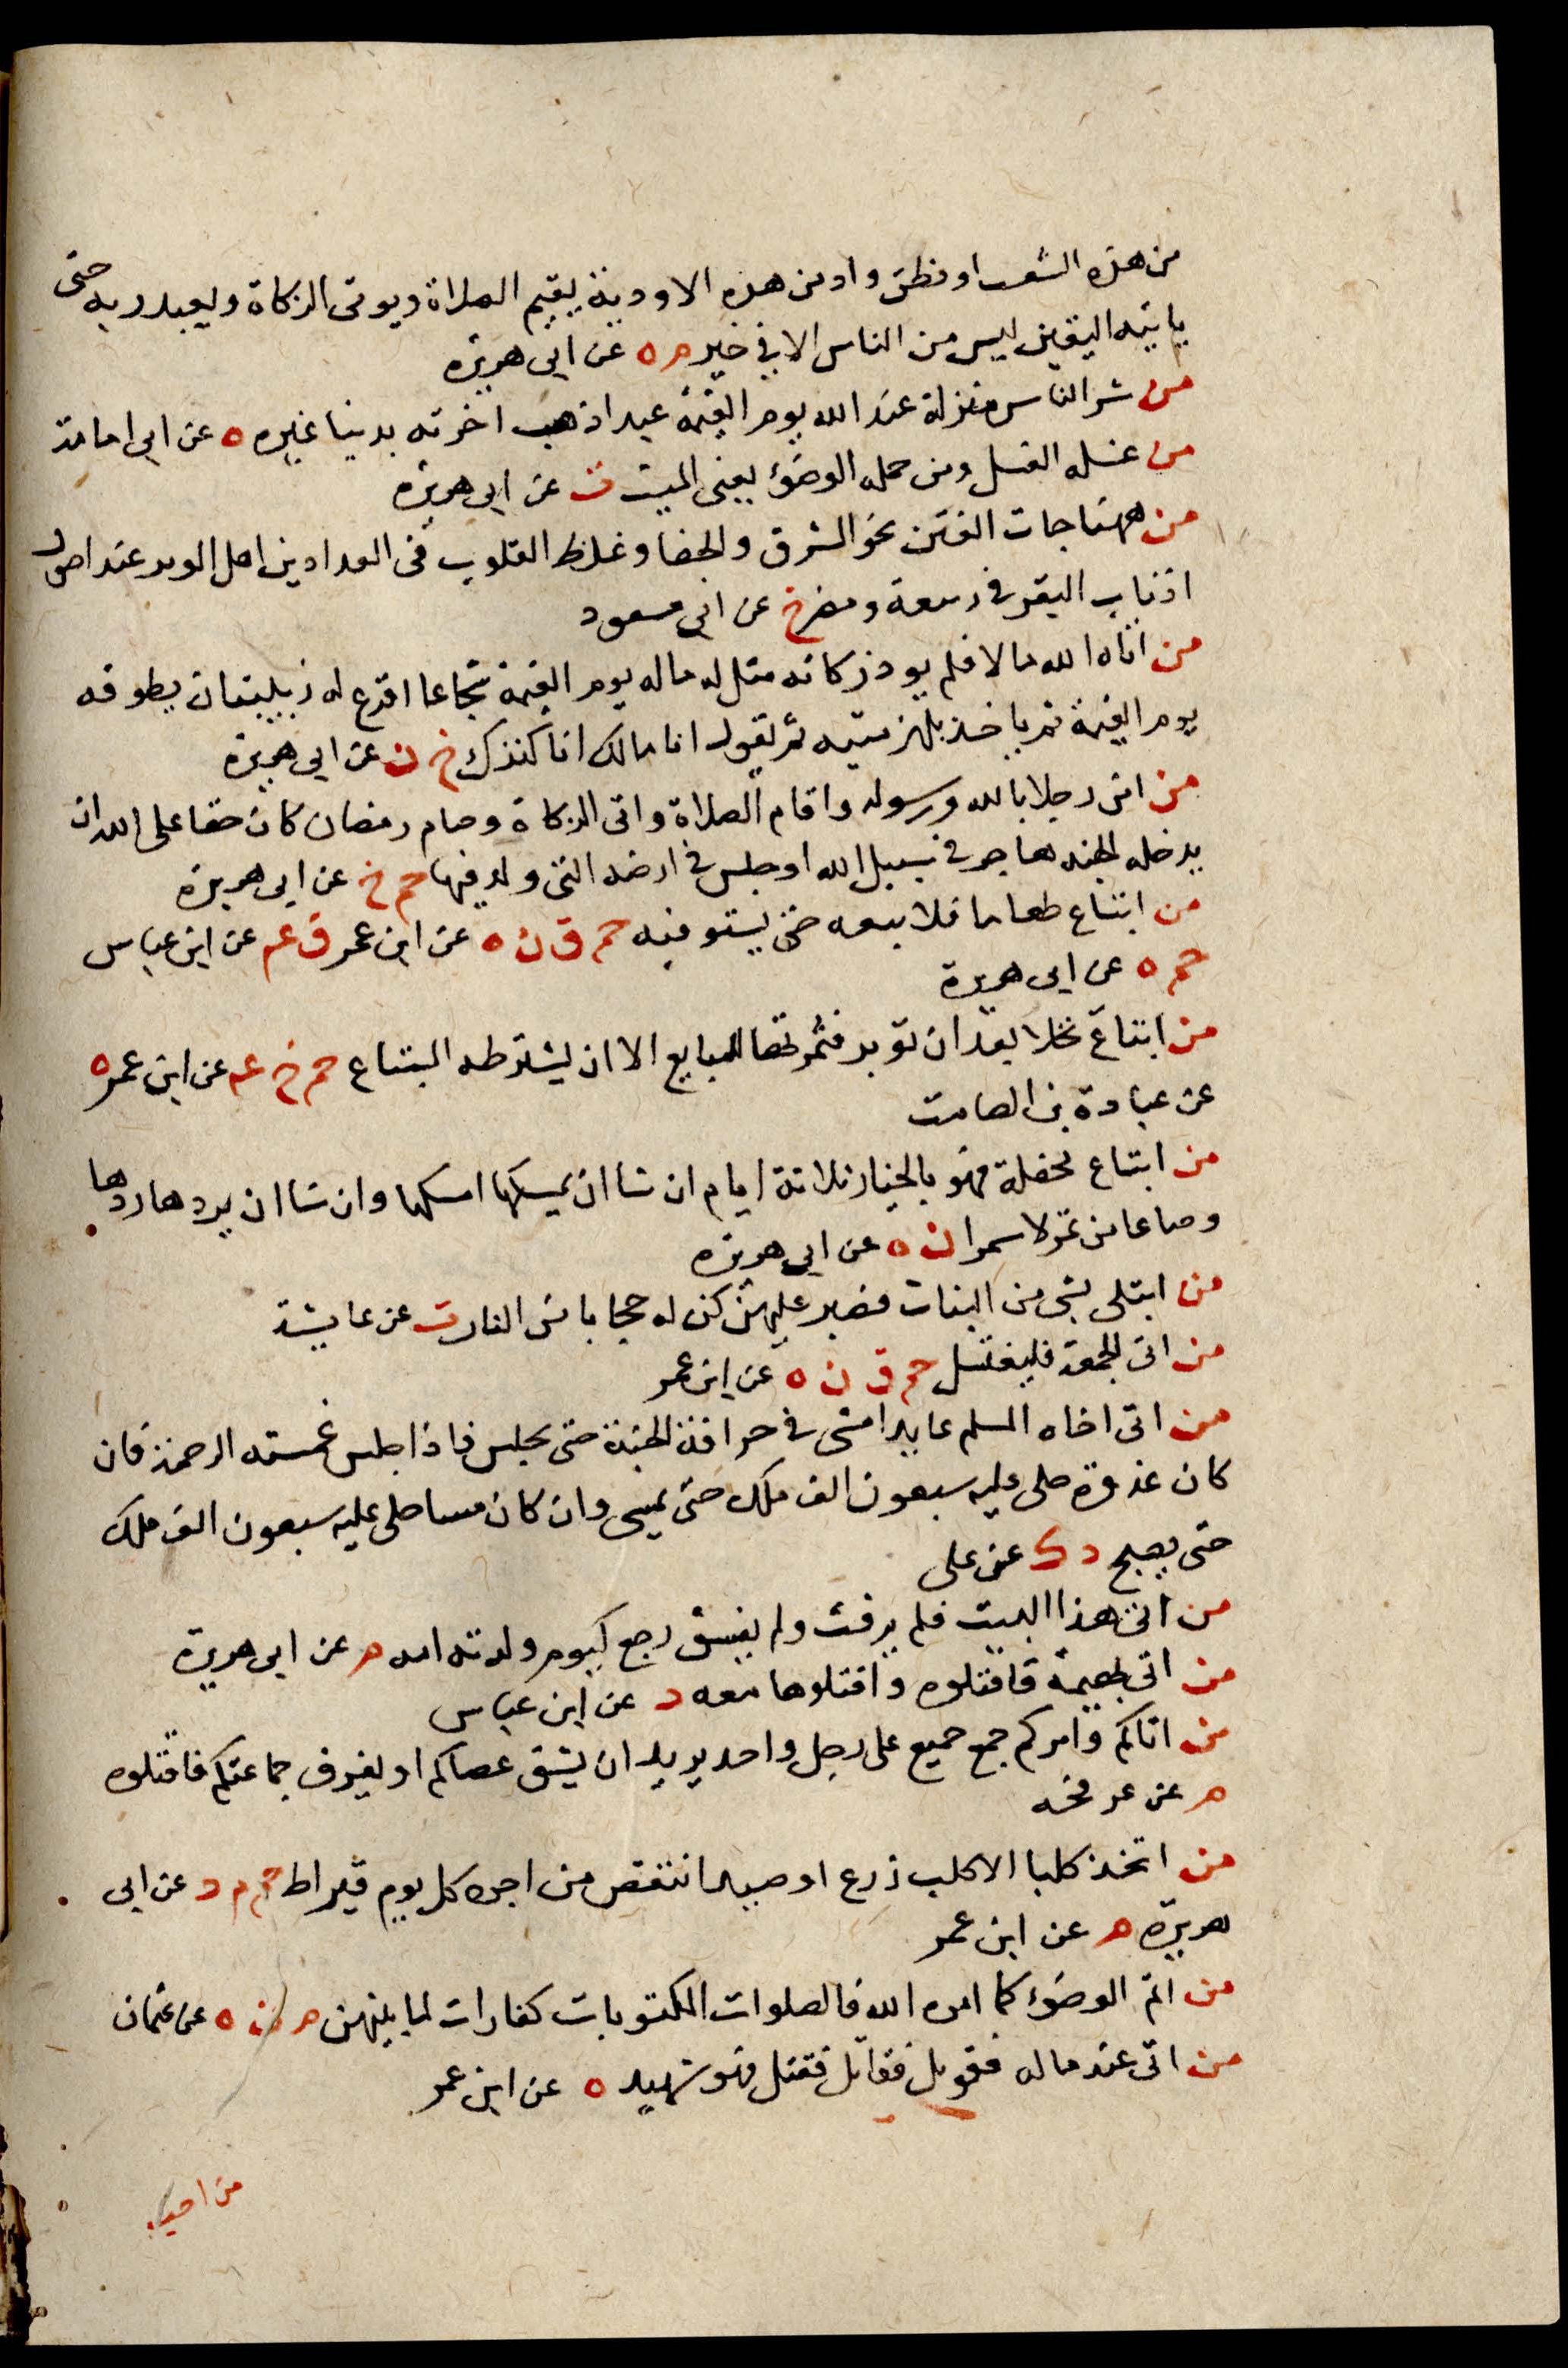 من هذه الشعب او بطن واد من هذه الاودية يقيم الصلاة ويوتى الزكاة ويعبد ربه حتى
ياتيه اليقين ليس من الناس الا في خير م ه عن ابى هريره
من شر الناس منزلة عند الله يوم القيمة عبد اذهب اخرته بدنيا غيره ه عن ابى امامة
من غسله الغسل ومن حمله الوضؤ يعنى الميت ت عن ابى هريره
من ههنا جات الفتن نحو الشرق والجفا وغلظ القلوب فى الفدادين اهل الوبر عند اصول
اذناب البقر فى ربيعة ومضر خ عن ابى مسعود
من اتاه الله مالا فلم يود زكاته مثل له ماله يوم القيمة شجاعا اقرع له زبيبتان يطوقه
يوم القيمة ثم ياخذ بلهزمتيه ثم يقول انا مالك انا كنزك خ ن عن ابى هريره
من امن رجلا بالله ورسوله واقام الصلاة واتى الزكاة وصام رمضان كان حقا على الله ان
يدخله الجنه هاجر فى سبيل الله او جلس فى ارضه التى ولد فيها حم خ عن ابى هريرة
من ابتاع طعاما فلا يبعه حتى يستوفيه حم ق ن ه عن ابن عمر ق عم عن ابن عباس
حم ه عن ابى هريرة
من ابتاع نخلا بعد ان توبر فثمرتها للبايع الا ان يشترطه المبتاع حم خ عم عن ابن عمر ه
عن عبادة بن الصامت
من ابتاع محفلة فهو بالخيار ثلاثة ايام ان شا ان يمسكها امسكها وان شا ان يردها ردها
وصاعا من تمر لا سمرا ن ه عن ابى هريره
من ابتلى بشى من البنات فصبر عليهن كن له حجابا من النار ت عن عايشة
من اتى الجمعة فليغتسل حم ق ن ه عن ابن عمر
من اتى اخاه المسلم عايدا مشى فى خرافة الجنة حتى يجلس فاذا جلس غمسته الرحمة فان
كان غدوة صلى عليه سبعون الف ملك حتى يمسى وان كان مسا صلى عليه سبعون الف ملك
حتى يصبح د ك عن على
من اتى هذا البيت فلم يرفث ولم يفسق رجع كيوم ولدته امه م عن ابى هريرة
من اتى بهيمة فاقتلوه واقتلوها معه د عن ابن عباس
من اتاكم وامركم جمع جميع على رجل واحد يريد ان يشق عصاكم او يفرق جماعتكم فاقتلوه
م عن عرفجه
من اتخذ كلبا الا كلب زرع او صيد انتقص من اجره كل يوم قيراط حم م د عن ابى
هريرة م عن ابن عمر
من اتم الوضوء كما امره الله فالصلوات المكتوبات كفارات لما بينهن م ن ه عن عثمان
من اتى عند ماله فقوتل فقاتل فقتل فهو شهيد ه عن ابن عمر
من احيا